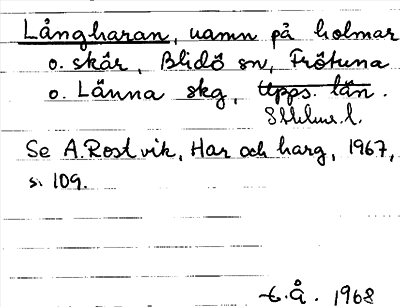 Långharan, namn på holmar
o. skär, Blidö sn, Frötuna
o. Länna skg, Upps. län.
Sthlms l.
Se A. Rostvik, Har och harg, 1967,
s. 109.
E. Å. 1968